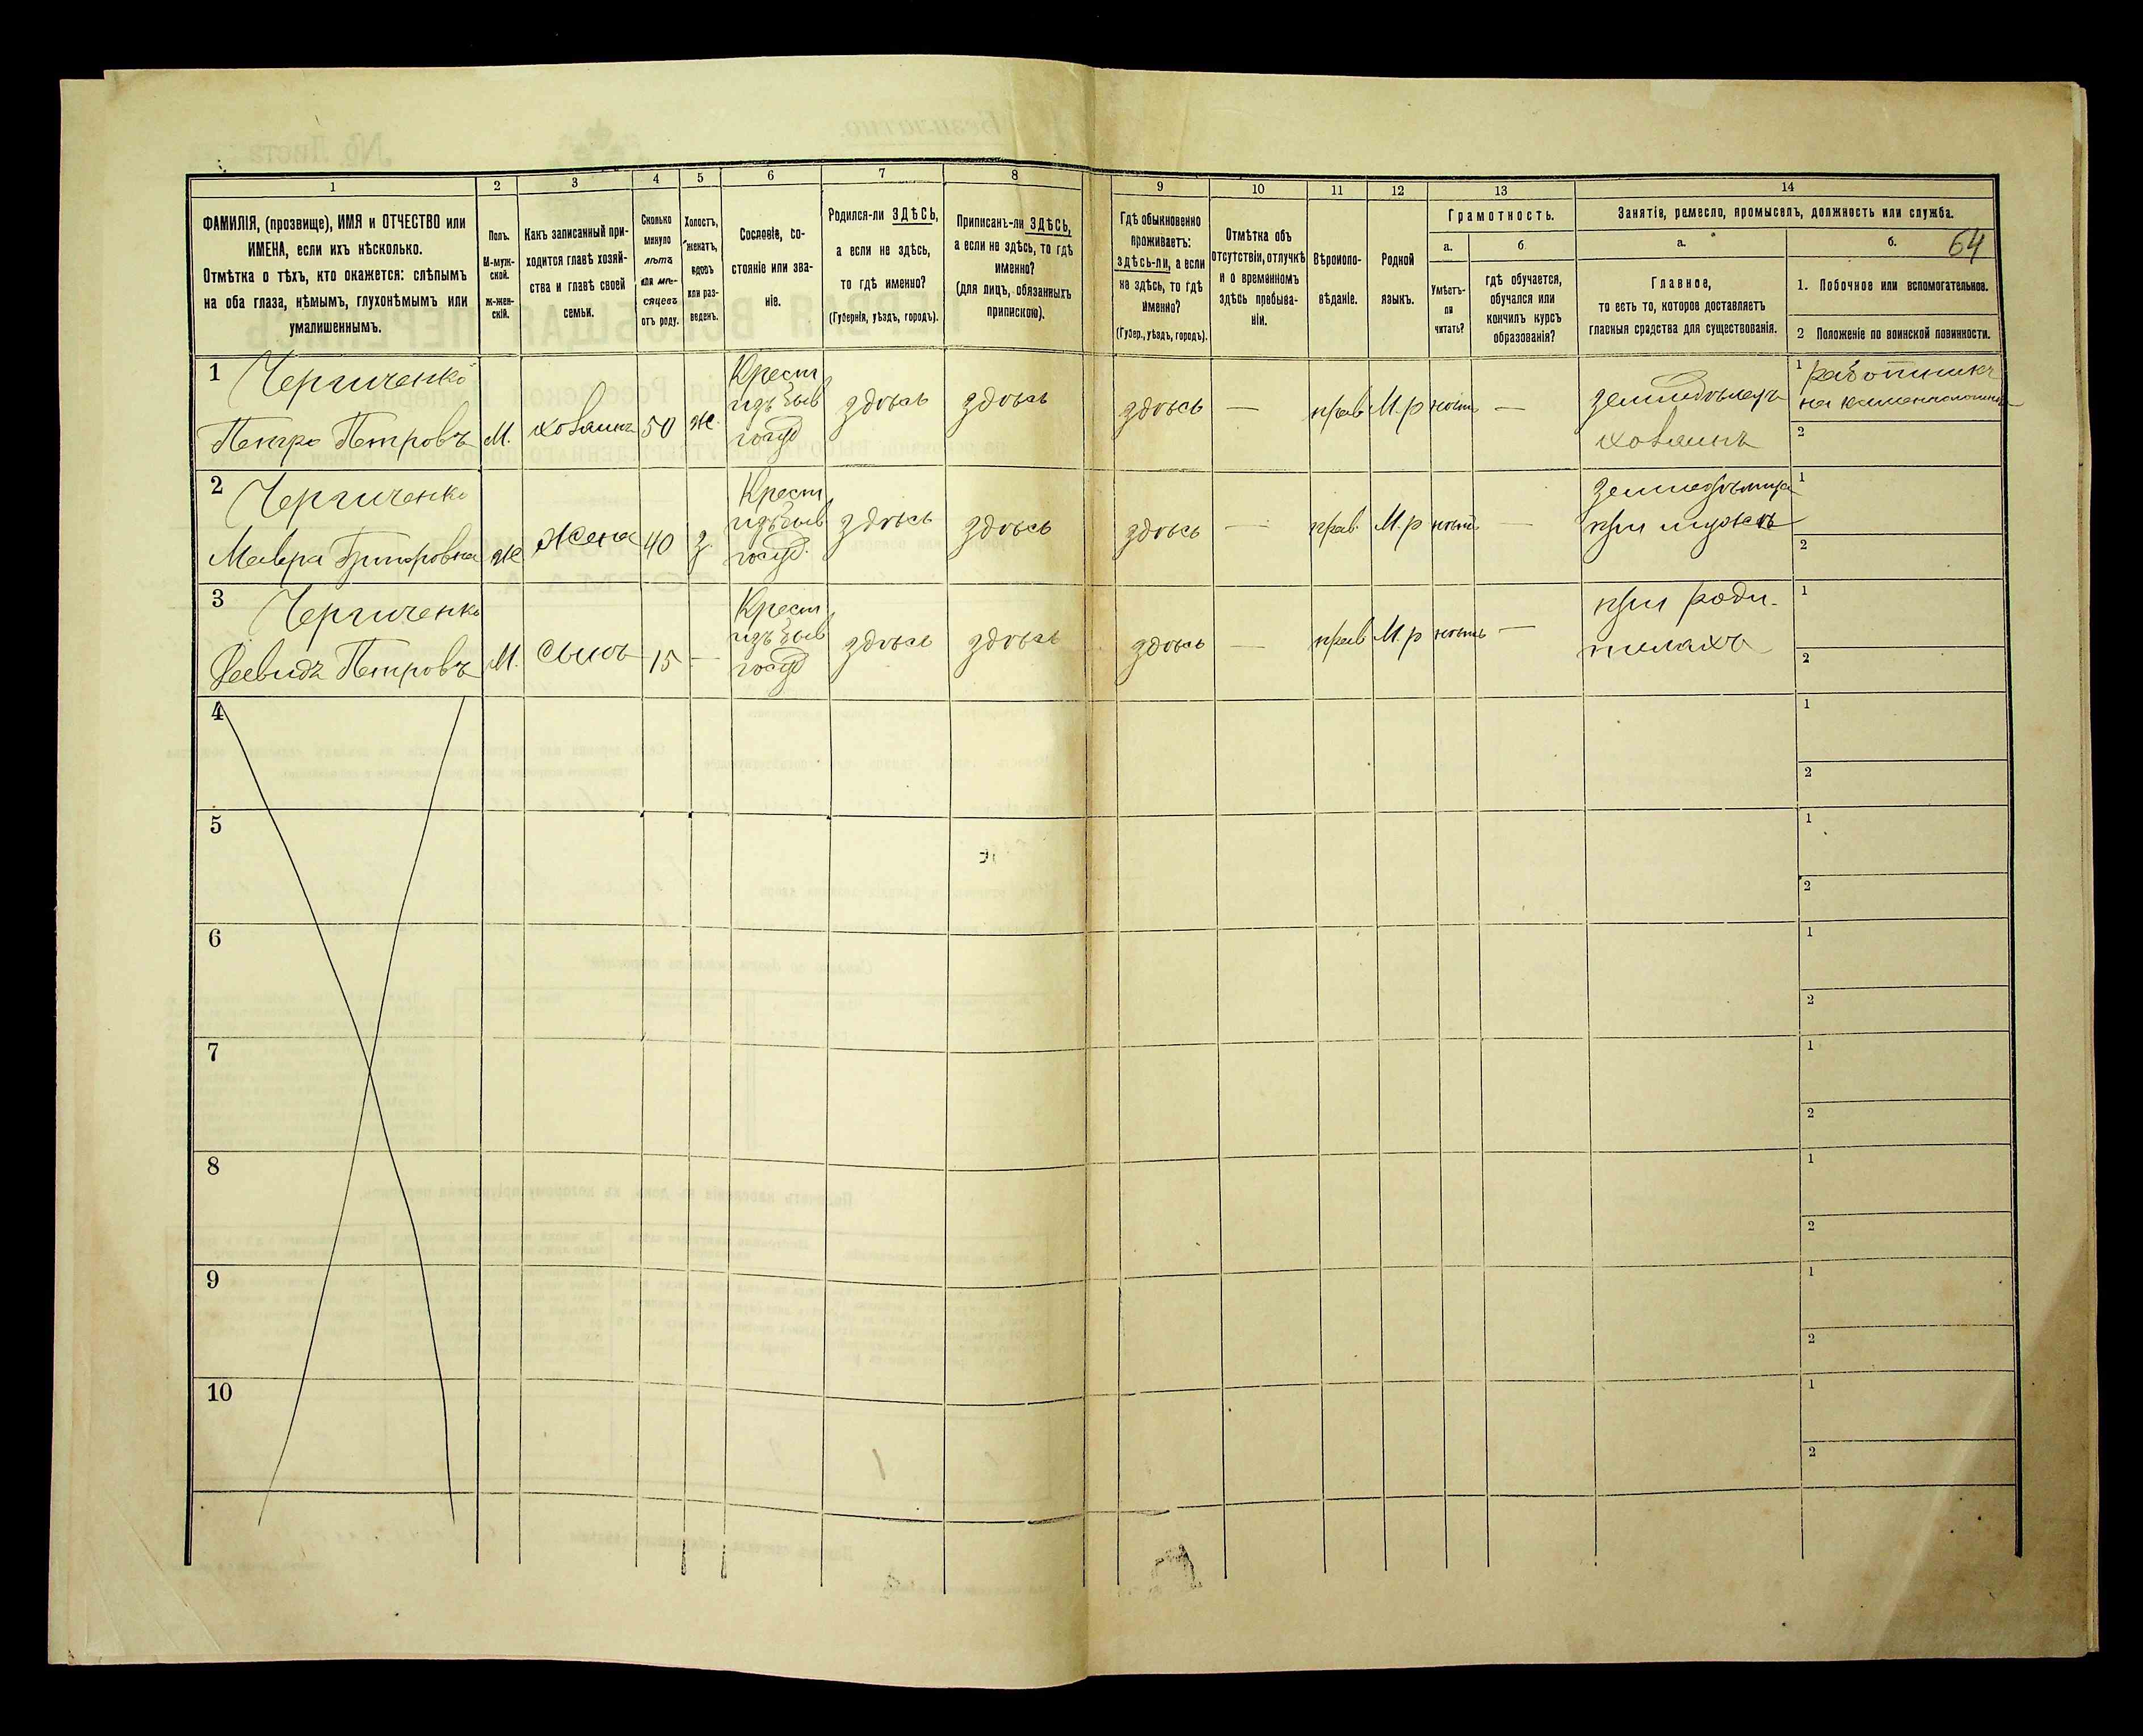 1 2 3 4 5 6 7 8 9 10 11 12 13 14
ФАМИЛІЯ, (прозвище), ИМЯ и ОТЧЕСТВО или
ИМЕНА, если ихъ нѣсколько.
Отмѣтка о тѣхъ, кто окажется: слѣпымъ
на оба глаза, нѣмымъ, глухонѣмымъ или
умалишеннымъ.
Полъ.
М-муж-
ской.
Ж-жен-
скій.
Какъ записанный при-
ходится главѣ хозяй-
ства и главѣ своей
семьи.
Сколько
минуло
лѣтъ
или мѣ-
сяцевъ
отъ роду.
Холостъ,
женатъ,
вдовъ
или раз-
веденъ.
Сословіе, со-
стояніе или зва-
ніе.
Родился-ли ЗДѢСЬ,
а если не здѣсь,
то гдѣ именно?
(Губернія, уѣздъ, городъ).
Приписанъ-ли ЗДѢСЬ,
а если не здѣсь, то гдѣ
именно?
(для лицъ, обязанныхъ
припискою).
Гдѣ обыкновенно
проживаетъ:
здѣсь-ли, а если
не здѣсь, то гдѣ
именно?
(Губер., уѣздъ, городъ).
Отмѣтка объ
отсутствіи, отлучкѣ
и о временномъ
здѣсь пребыва-
ніи.
Вѣроиспо-
вѣданіе.
Родной
языкъ.
Грамотность.
а.
Умѣетъ-
ли
читать?
б.
гдѣ обучается,
обучался или
кончилъ курсъ
образованія?
Занятіе, ремесло, промыселъ, должность или служба.
а.
Главное,
то есть то, которое доставляетъ
главныя средства для существованія.
б.
64
1. Побочное или вспомогательное.
2 Положеніе по воинской повинности.
1
Петро Петровъ М. 50 ж.
Крест
изъ быв
госуд
здѣсь здѣсь здѣсь — прав М.р нѣтъ —
1 работникъ
2
2
Мавра Григоровна ж жена 40 з.
Крест
изъ быв
госуд.
здѣсь здѣсь здѣсь — прав. М.р нѣтъ —
при мужѣ
1
2
3
Петровъ М. сынъ 15 —
Крест
изъ быв
госуд
здѣсь здѣсь здѣсь — прав М.р нѣтъ —
при роди-
телахъ
1
2
4 1
2
5 1
2
6 1
2
7 1
2
8 1
2
9 1
2
10 1
2